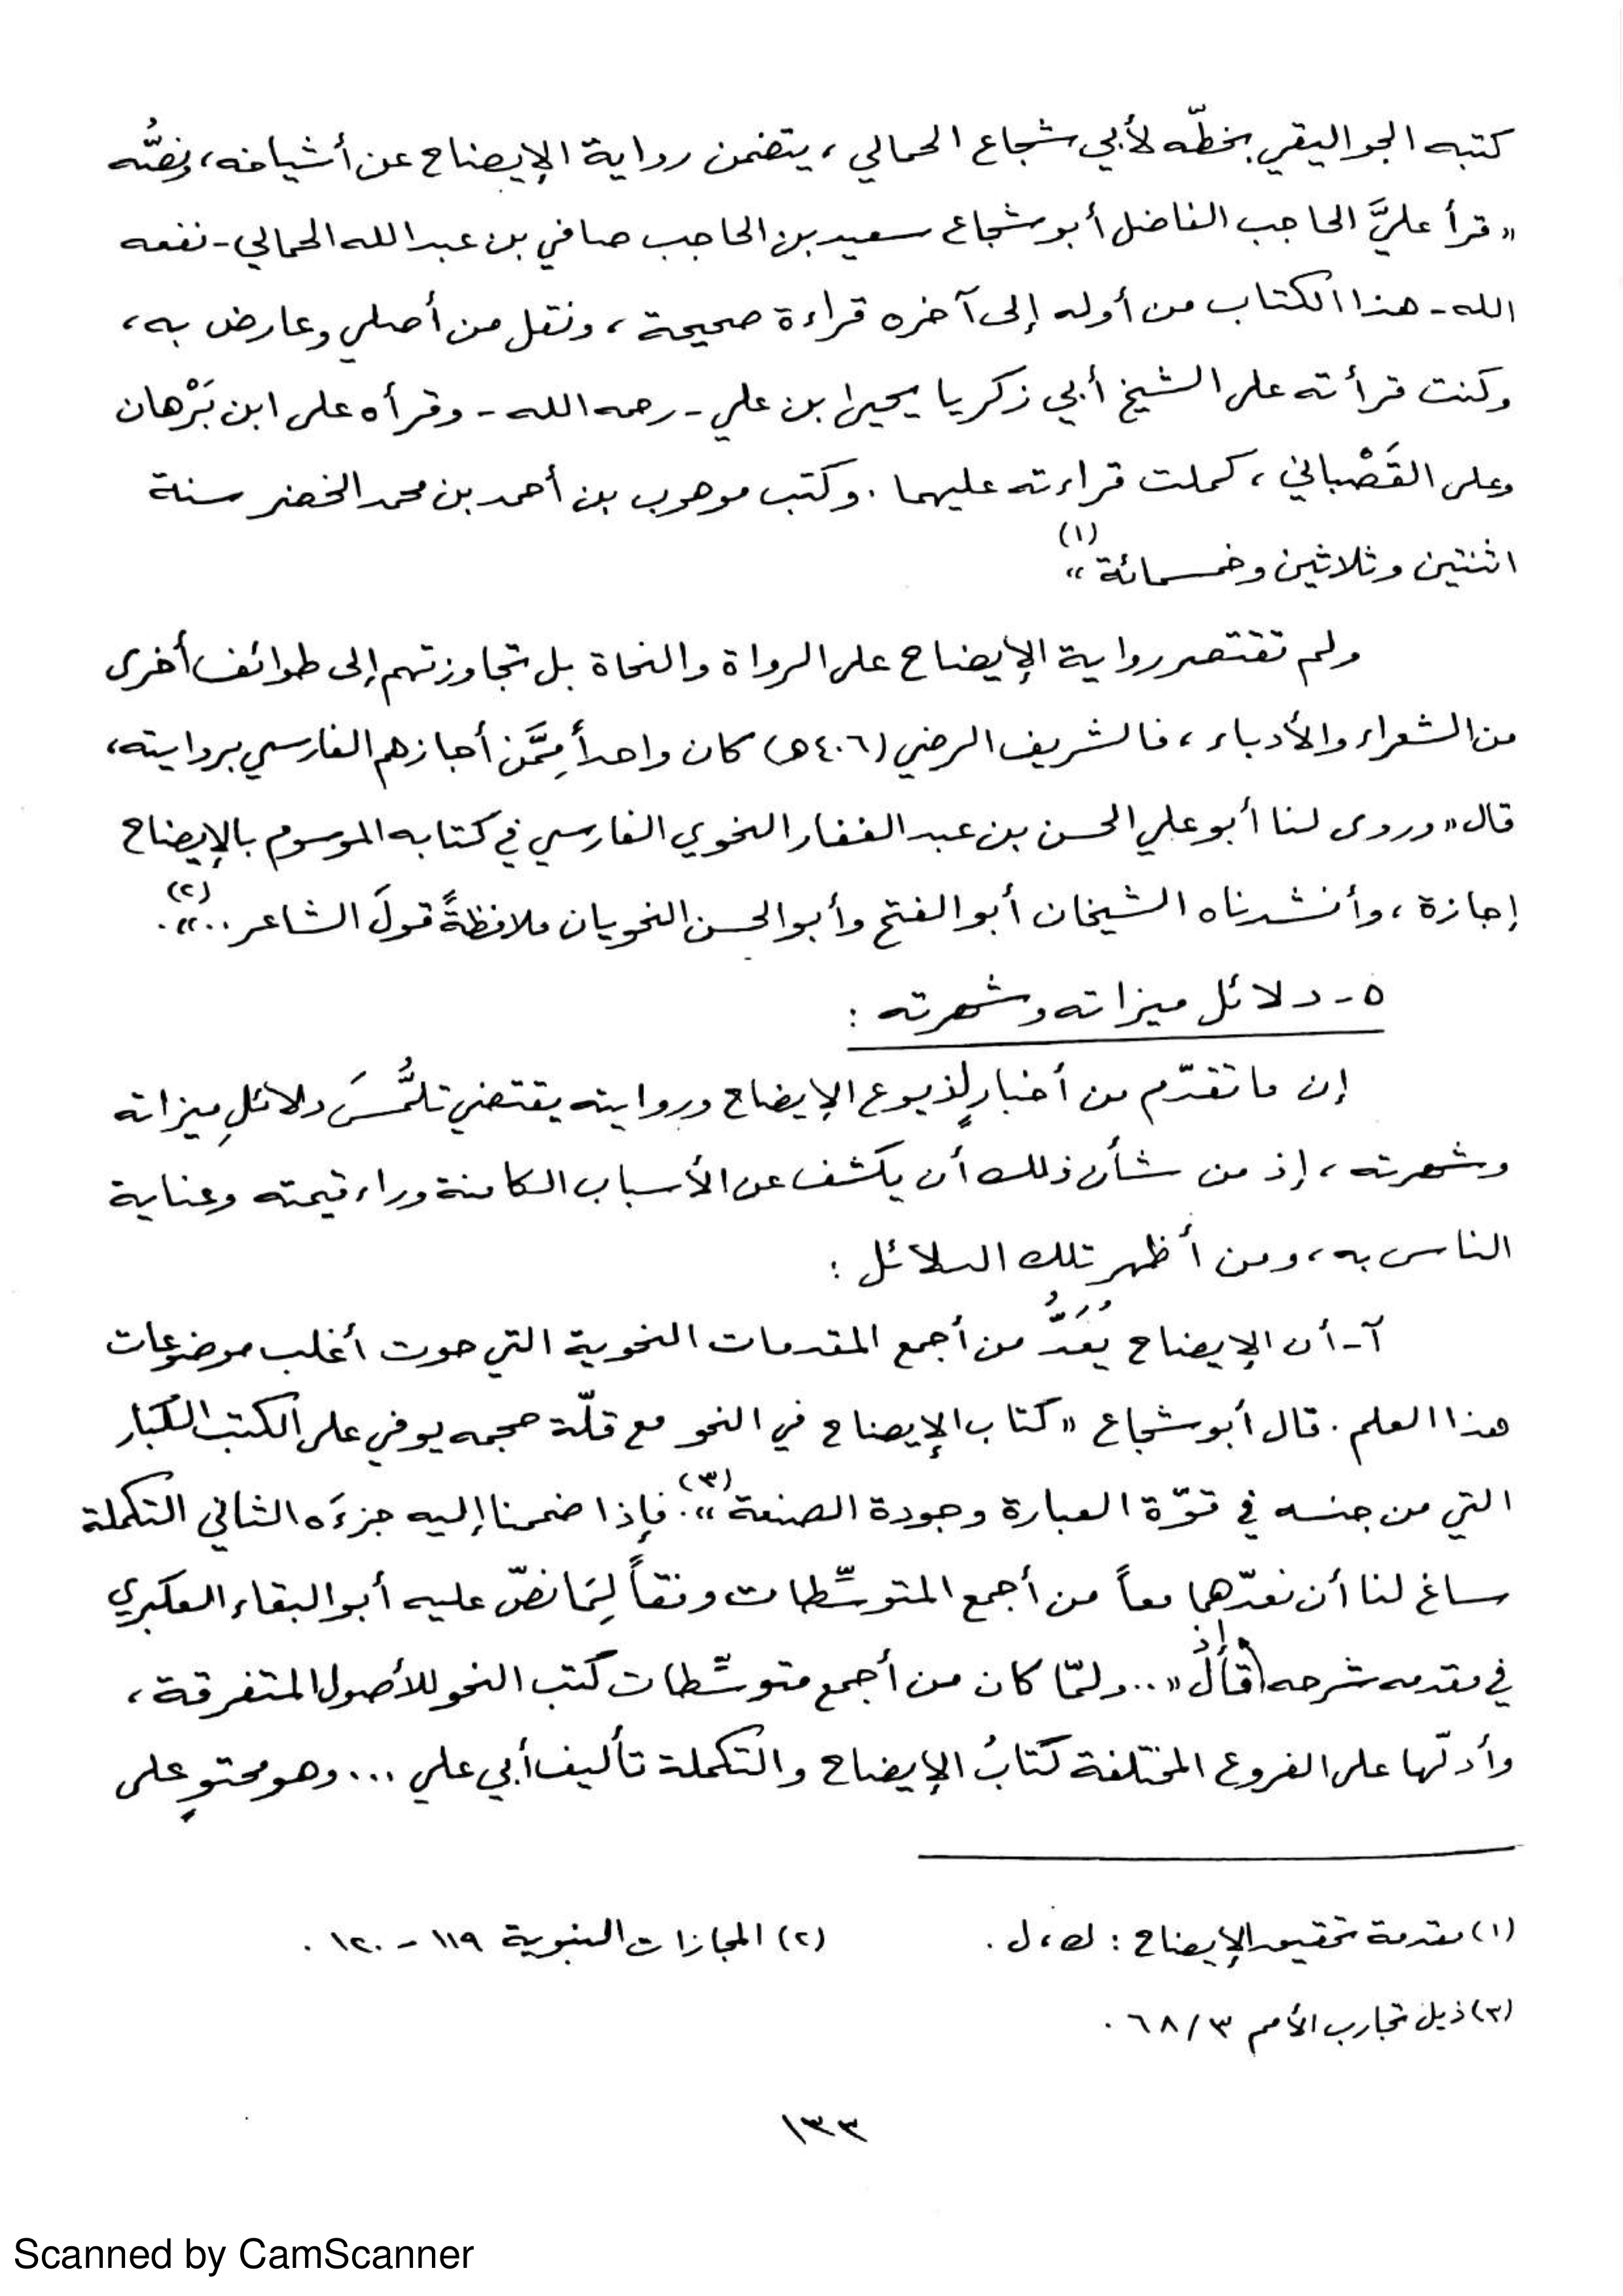 كتبه الجواليقي بخطّه لأبي شجاع الحمالي ، يتضمن رواية الإيضاح عن أشياخه، ونصُّه
« قرأ عليَّ الحاجب الفاضل أبو شجاع سعيد بن الحاجب صافي بن عبد الله الحمالي - نفعه
الله - هذا الكتاب من أوله إلى آخره قراءة صحيحة ، ونقل من أصلي وعارض به ،
وكنت قرأته على الشيخ أبي زكريا يحيى بن علي - رحمه الله - وقرأه على ابن بَرْهان
وعلى القَصْباني ، كملت قراءته عليهما . وكتب موهوب بن أحمد بن محمد الخضر سنة
اثنتين وثلاثين وخمسمائة »(١)
ولم تقتصر رواية الإيضاح على الرواة والنحاة بل تجاوزتهم إلى طوائف أخرى
من الشعراء والأدباء ، فالشريف الرضي (٤٠٦ هـ) كان واحداً مِمَّن أجازهم الفارسي بروايته،
قال « وروى لنا أبو علي الحسن بن عبد الغفار النحوي الفارسي في كتابه الموسوم بالإيضاح
إجازة ، وأنشدناه الشيخان أبو الفتح وأبو الحسن النحويان ملافظةً قولَ الشاعر ..»(٢) .
٥ - دلائل ميزاته وشهرته :
إن ما تقدّم من أخبارٍ لذيوع الإيضاح وروايته يقتضي تلمُّسَ دلائلِ ميزاته
وشهرته ، إذ من شأن ذلك أن يكشف عن الأسباب الكامنة وراء قيمته وعناية
الناس به ، ومن أظهر تلك الدلائل :
آ - أن الإيضاح يُعَدُّ من أجمع المقدمات النحوية التي حوت أغلب موضوعات
هذا العلم . قال أبو شجاع « كتاب الإيضاح في النحو مع قلّة حجمه يوفي على الكتب الكبار
التي من جنسه في قوّة العبارة وجودة الصنعة »(٣). فإذا ضممنا إليه جزءَه الثاني التكملة
ساغ لنا أن نعدّهما معاً من أجمع المتوسِّطات وفقاً لِمَا نصّ عليه أبو البقاء العكبري
في مقدمه شرحه إذ قال « .. ولمّا كان من أجمع متوسِّطات كتب النحو للأصول المتفرقة ،
وأدلّها على الفروع المختلفة كتابُ الإيضاح والتكملة تأليف أبي علي ... وهو محتوٍ على
(١) مقدمة تحقيق الإيضاح : ك ، ل .
(٢) المجازات النبوية ١١٩ - ١٢٠ .
(٣) ذيل تجارب الأمم ٣ / ٦٨ .
١٣٣
Scanned by CamScanner